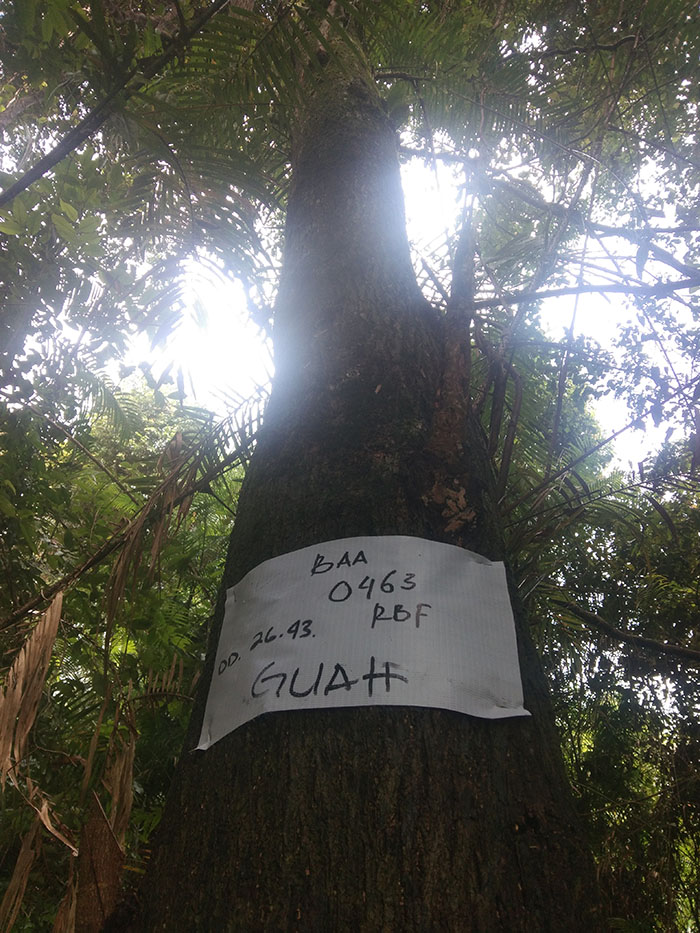 BAA
0463
RBF
DD. 26.43.
GUAH